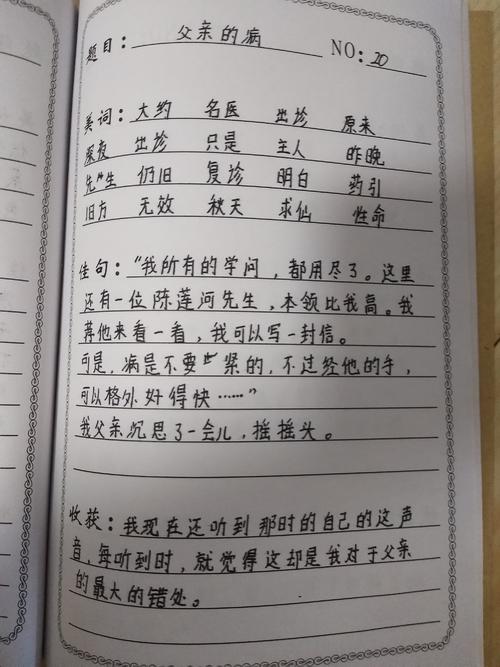 题目：父亲的病 NO：20
美词：大约 名医 出诊 原来
深夜 出诊 只是 主人 昨晚
先生 仍旧 复诊 明白 药引
旧方 无效 秋天 求仙 性命
佳句：“我所有的学问，都用尽了。这里
还有一位陈莲河先生，本领比我高。我
荐他来看一看，我可以写一封信。
可是，病是不要紧的，不过经他的手，
可以格外好得快……”
我父亲沉思了一会儿，摇摇头。
收获：我现在还听到那时的自己的这声
音，每听到时，就觉得这却是我对于父亲
的最大的错处。